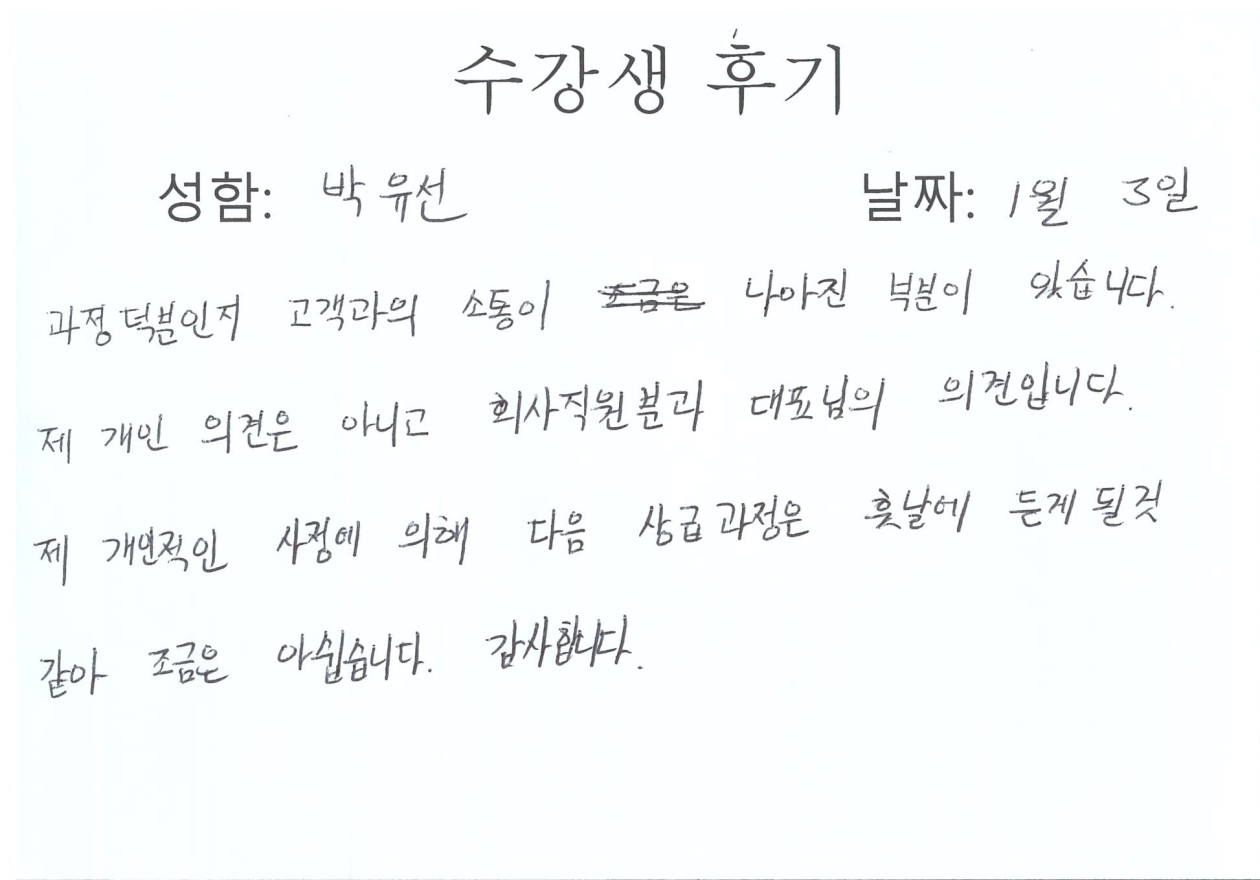 수강생 후기
성함: 박유선 날짜: 1월 3일
과정덕분인지 고객과의 소통이 조금은 나아진 부분이 있습니다.
제 개인 의견은 아니고 회사직원분과 대표님의 의견입니다.
제 개인적인 사정에 의해 다음 상급과정은 훗날에 듣게 될것
같아 조금은 아쉽습니다. 감사합니다.